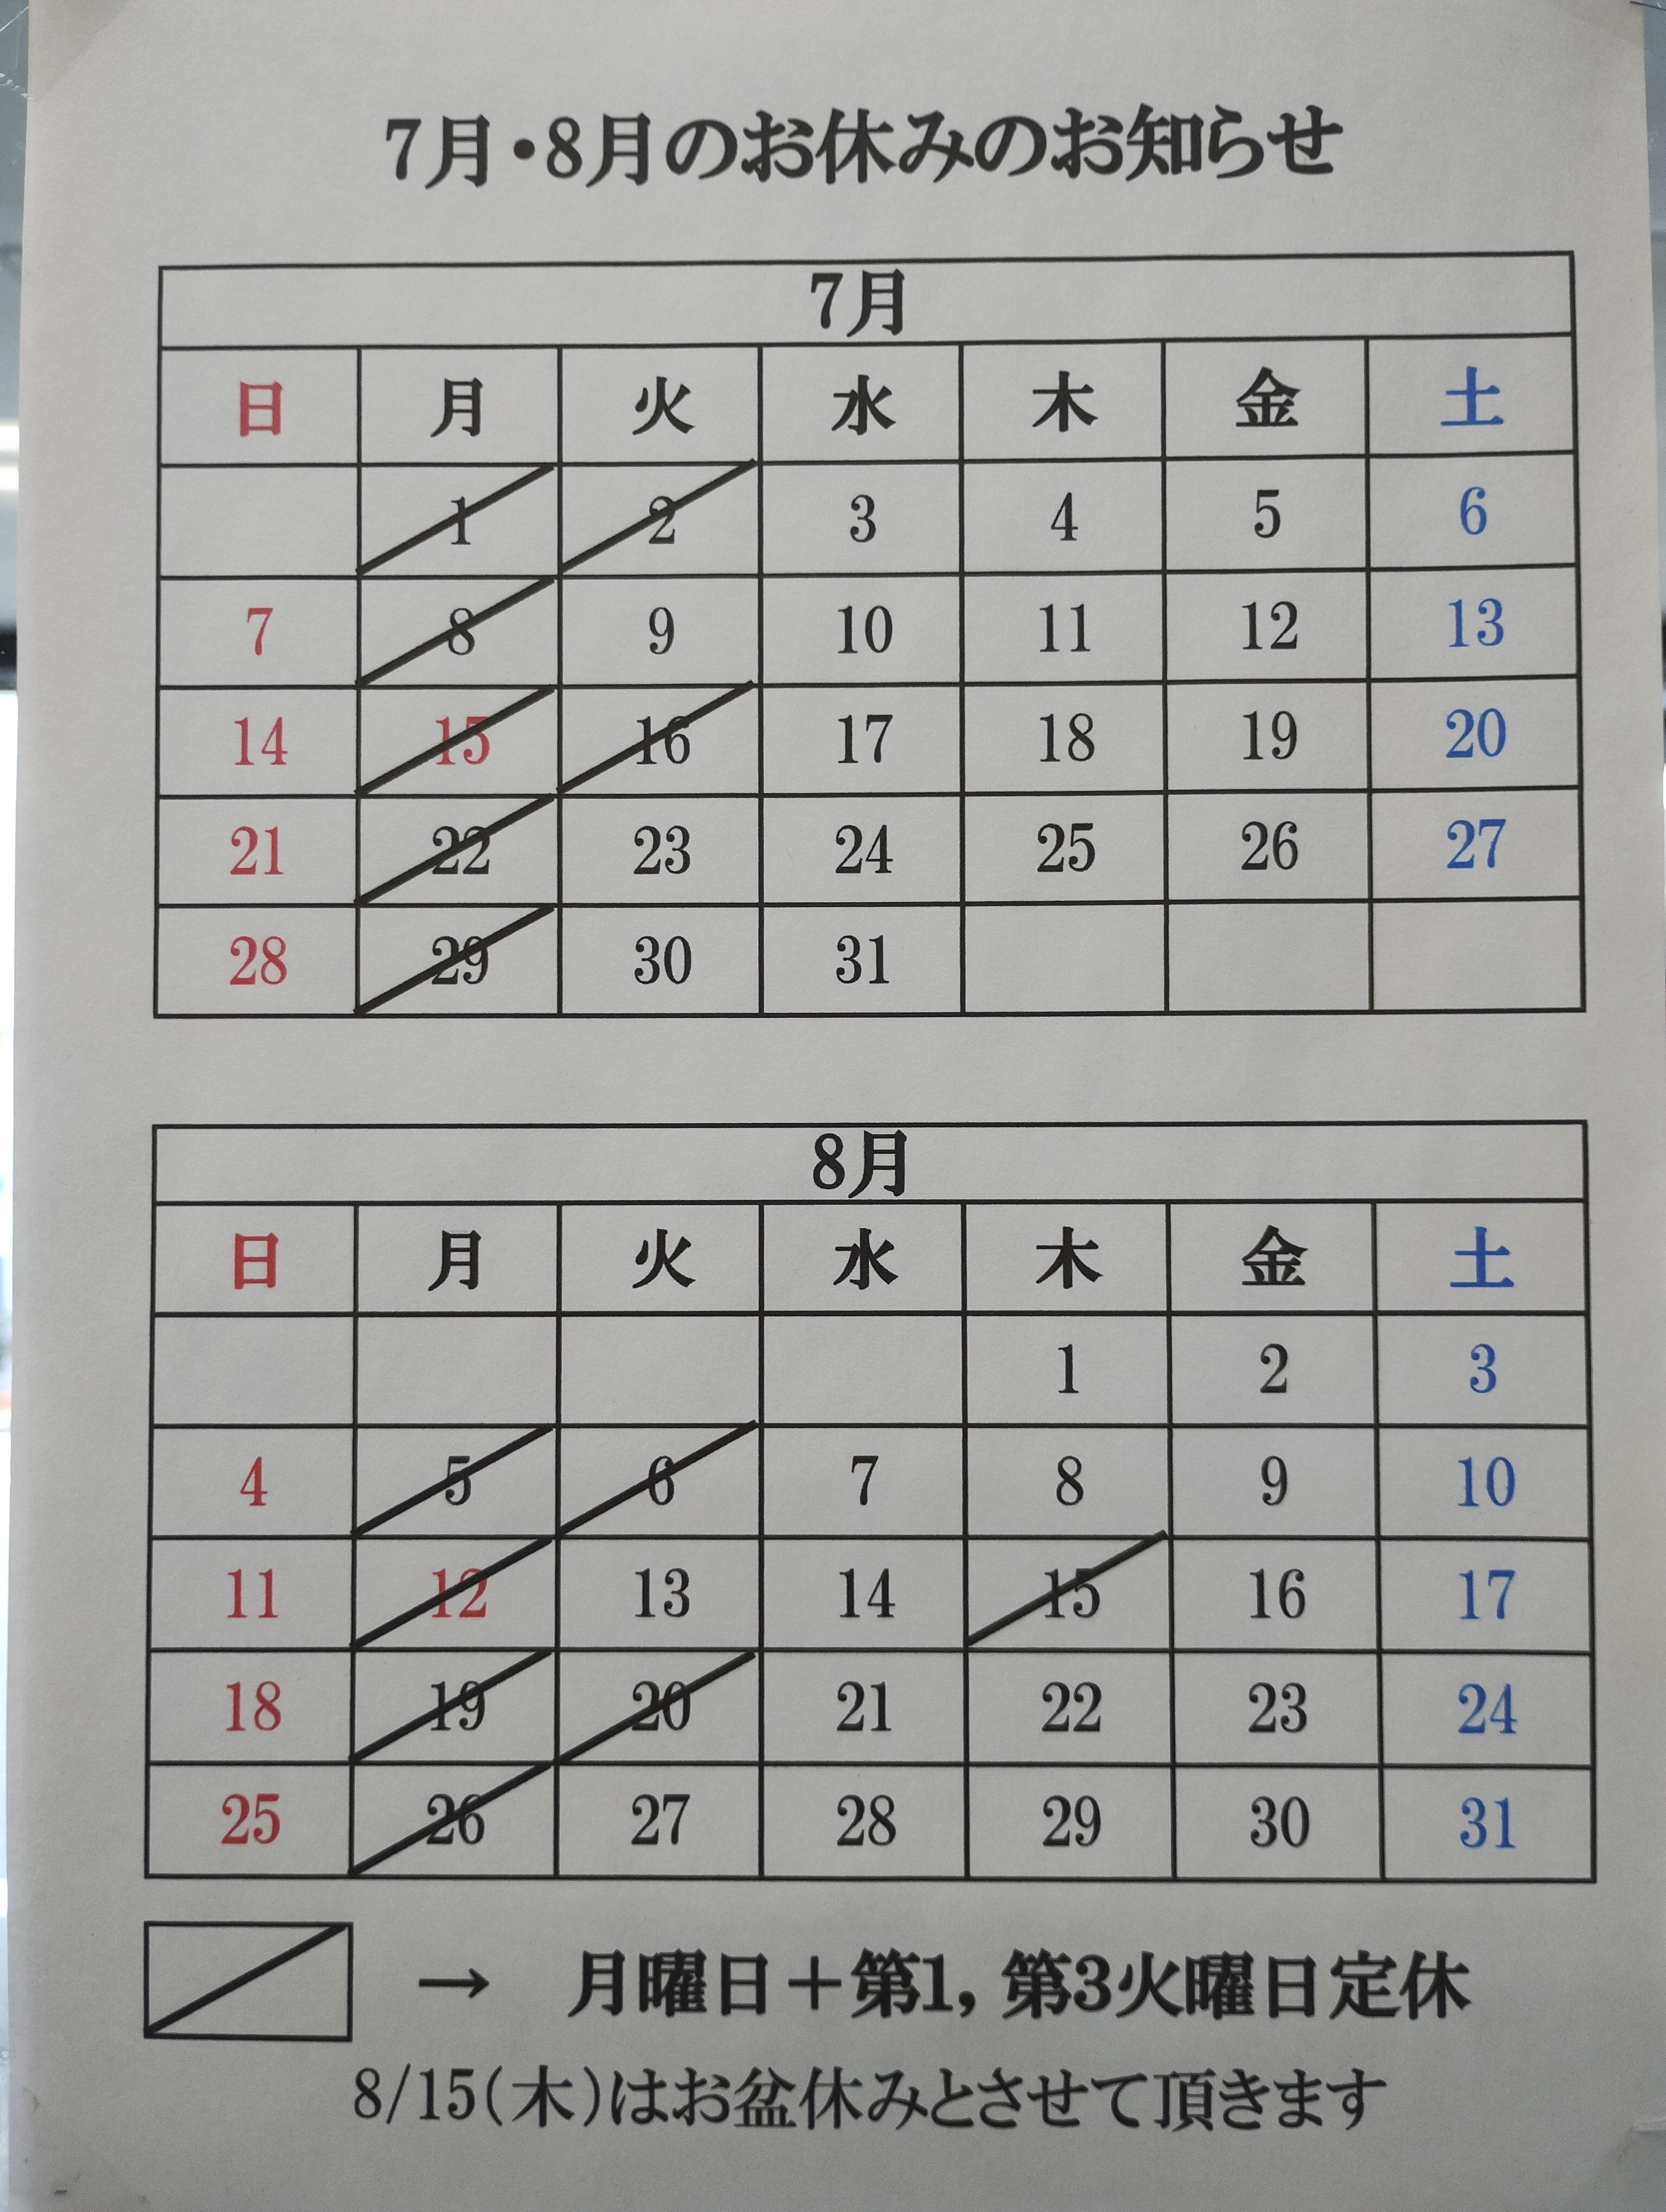 7月・8月のお休みのお知らせ
7月
日 月 火 水 木 金 土
1 2 3 4 5 6
7 8 9 10 11 12 13
14 15 16 17 18 19 20
21 22 23 24 25 26 27
28 29 30 31
8月
日 月 火 水 木 金 土
1 2 3
4 5 6 7 8 9 10
11 12 13 14 15 16 17
18 19 20 21 22 23 24
25 26 27 28 29 30 31
→ 月曜日＋第1, 第3火曜日定休
8/15(木)はお盆休みとさせて頂きます